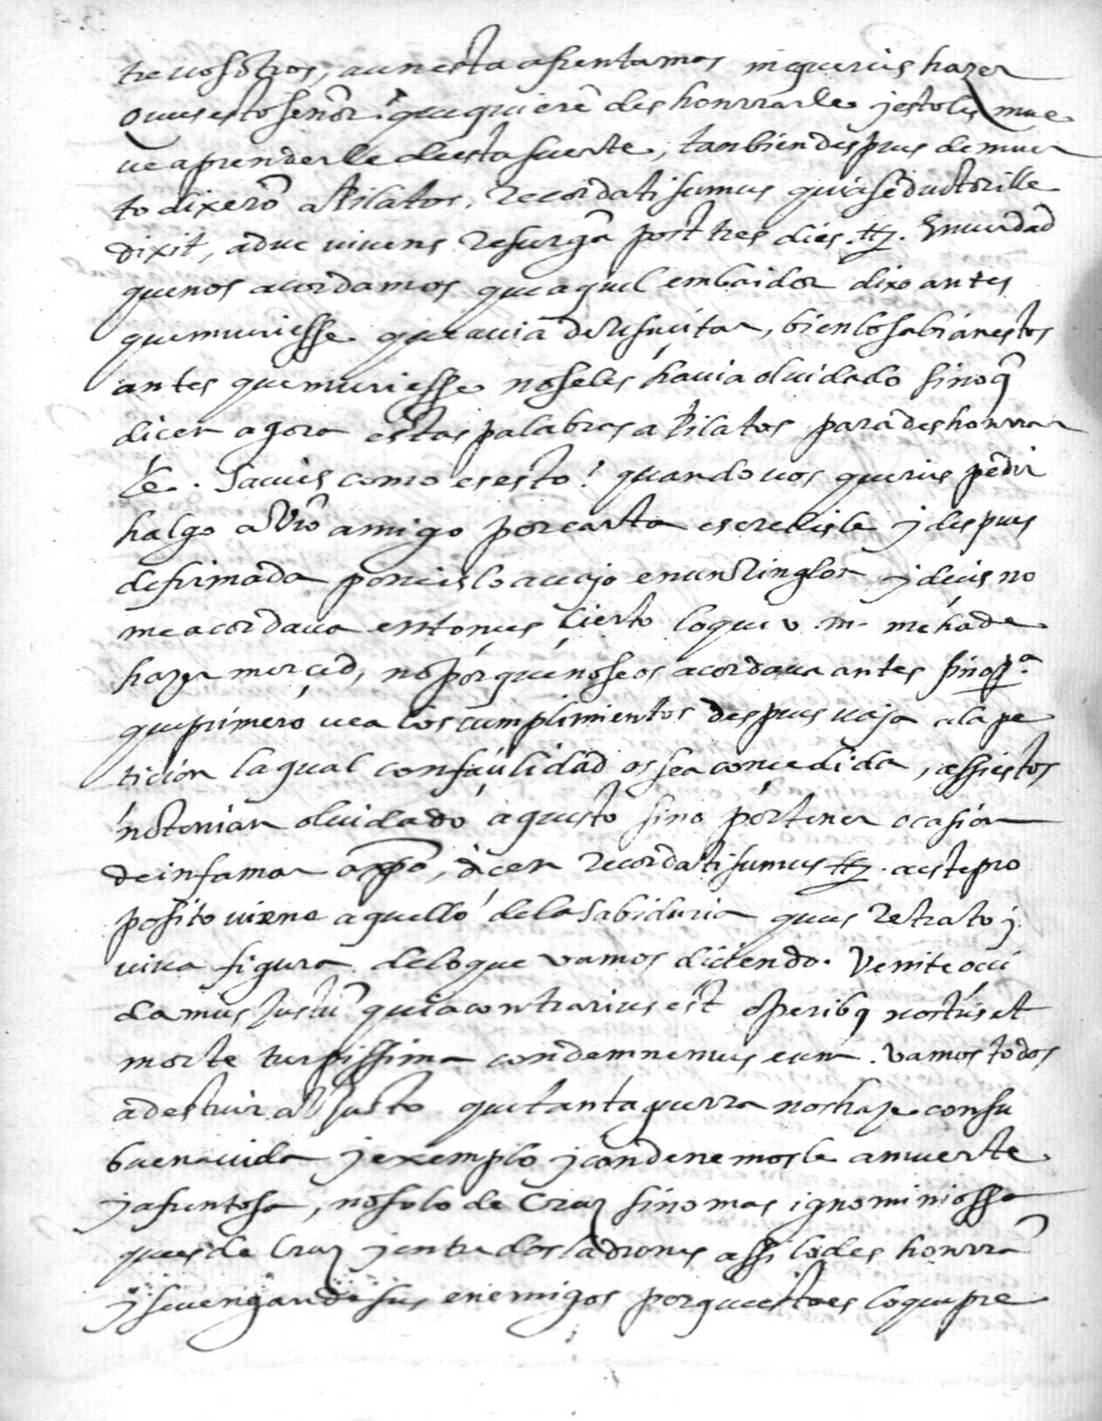 tre nosotros, aun esta afrentamos mequereis hazer
q̄ ues esto señor? que quierē des honrrarle, y esto les mue
ue a prenderlle de esta suerte, tanbien despues de muer
to dixerō a Pilatos, Recordati sumus quia seductor ille
dixit, aduc uiuens resurgā post tres dies. etz. En uerdad
que nos acordamos que aquel embaidor dixo antes
que muriesse que auia de resucitar, bien lo sabian estos
antes que muriesse no se les hauia oluidado sino q̄
dicen agora estas palabras a Pilatos para deshonrrar
le. Saueis como es esto? quando uos quereis pedir
halgo a Vrō amigo por carta escreuisle y despues
de firmada poneislo auajo en un ringlon y deçis no
me acordaua entonces çierto lo que v. m. me ha de
hazer merced, no porque no se os acordaua antes sino p.ª
que primero uea los cumplimientos despues uaja a la pe
ticion la qual con façilidad os sea concedida, assi estos
no tenian oluidado aquesto sino por tener ocasion
de infamar a xp̄o, dicen recordati sumus etz. a este pro
posito uiene aquello de la Sabiduria que es retrato y
uiua figura de lo que vamos diciendo. Venite occi
damus Justū quia contrarius est operibq nostris et
morte turpissima condemnemus eum. vamos todos
a destruir al Justo que tanta guerra nos haze con su
buena uida y exemplo y condenemosle a muerte
y afrentosa, no solo de Cruz sino mas ignominiossa
que es de Cruz y entre dos ladrones assi lo des honrrā
y se uengan de sus enemigos porque esto es lo que pre